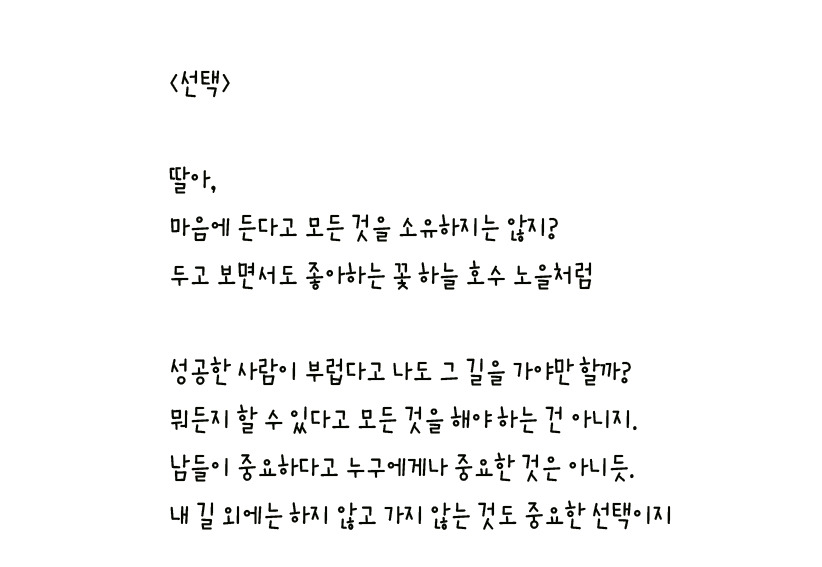 <선택>
딸아,
마음에 든다고 모든 것을 소유하지는 않지?
두고 보면서도 좋아하는 꽃 하늘 호수 노을처럼
성공한 사람이 부럽다고 나도 그 길을 가야만 할까?
뭐든지 할 수 있다고 모든 것을 해야 하는 건 아니지.
남들이 중요하다고 누구에게나 중요한 것은 아니듯.
내 길 외에는 하지 않고 가지 않는 것도 중요한 선택이지